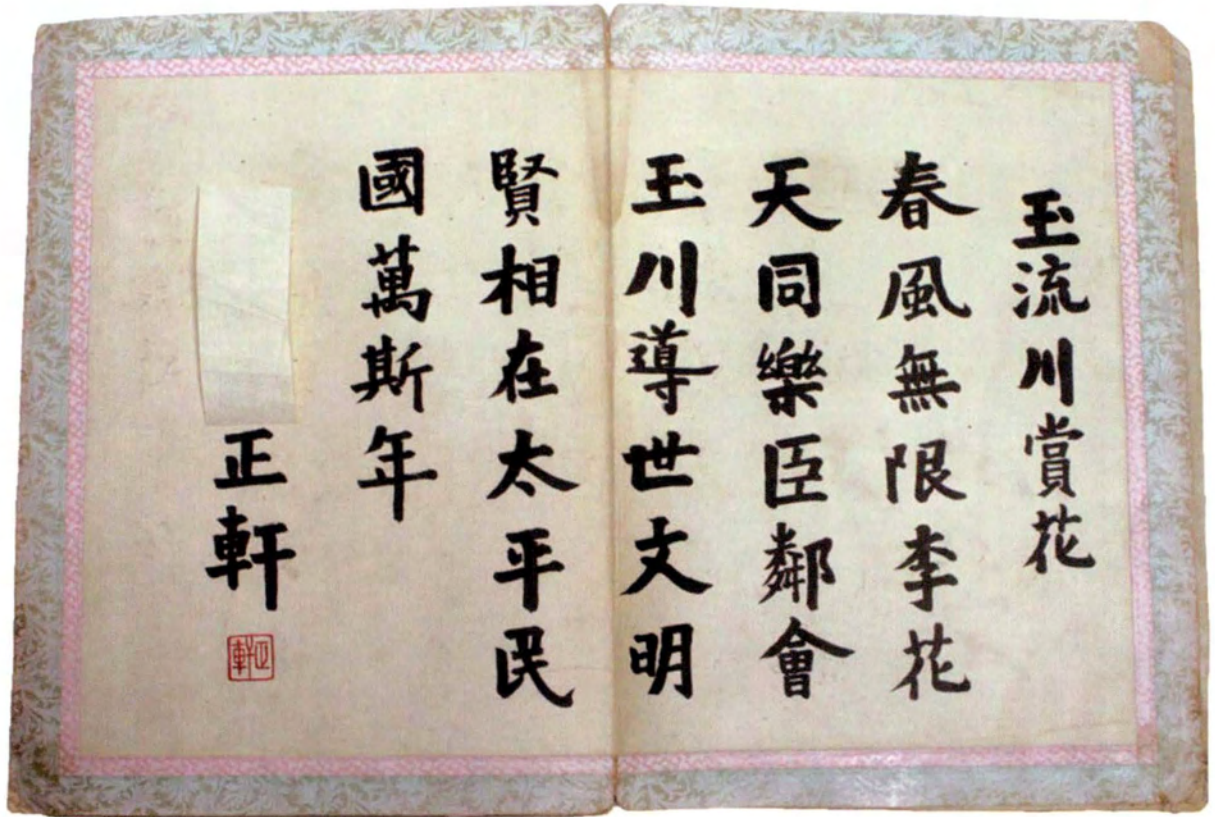 玉流川賞花
春風無限李花
天同樂臣鄰會
玉川導世文明
賢相在太平民
國萬斯年
正軒
正軒